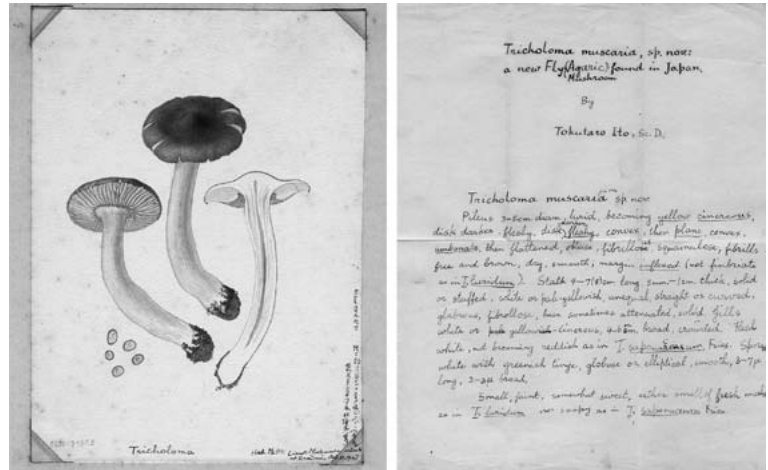 Tricholoma
Tricholoma muscaria, sp. nov:
a new Fly (Agaric) found in Japan,
Mushroom
By
Tokutaro Ito, Sc. D.
Tricholoma muscaria sp nov
Pileus 3-5cm diam, lurid, becoming yellow cinereous,
disk darker fleshy, disk fleshy, convex, then plane, convex,
umbonate, then flattened, obtuse, fibrillose, squamulose, fibrills
free and brown, dry, smooth, margin inflexed (not fimbriate
as in T. luridum). Stalk long 5mm-1cm thick, solid
or stuffed, white or pale yellowish, unequal, straight or curved,
glabrous, fibrillose, base sometimes attenuated, solid. Gills
white or pale yellowish-cinereous, broad, crowded. Flesh
white, not becoming reddish as in T. saponaceum, Fries. Spores
white with greenish tinge, globose or elliptical, smooth, 3-7μ
long, broad.
Smell, faint, somewhat sweet, neither smell of fresh meal
as in T. luridum nor soapy as in T. saponaceum Fries